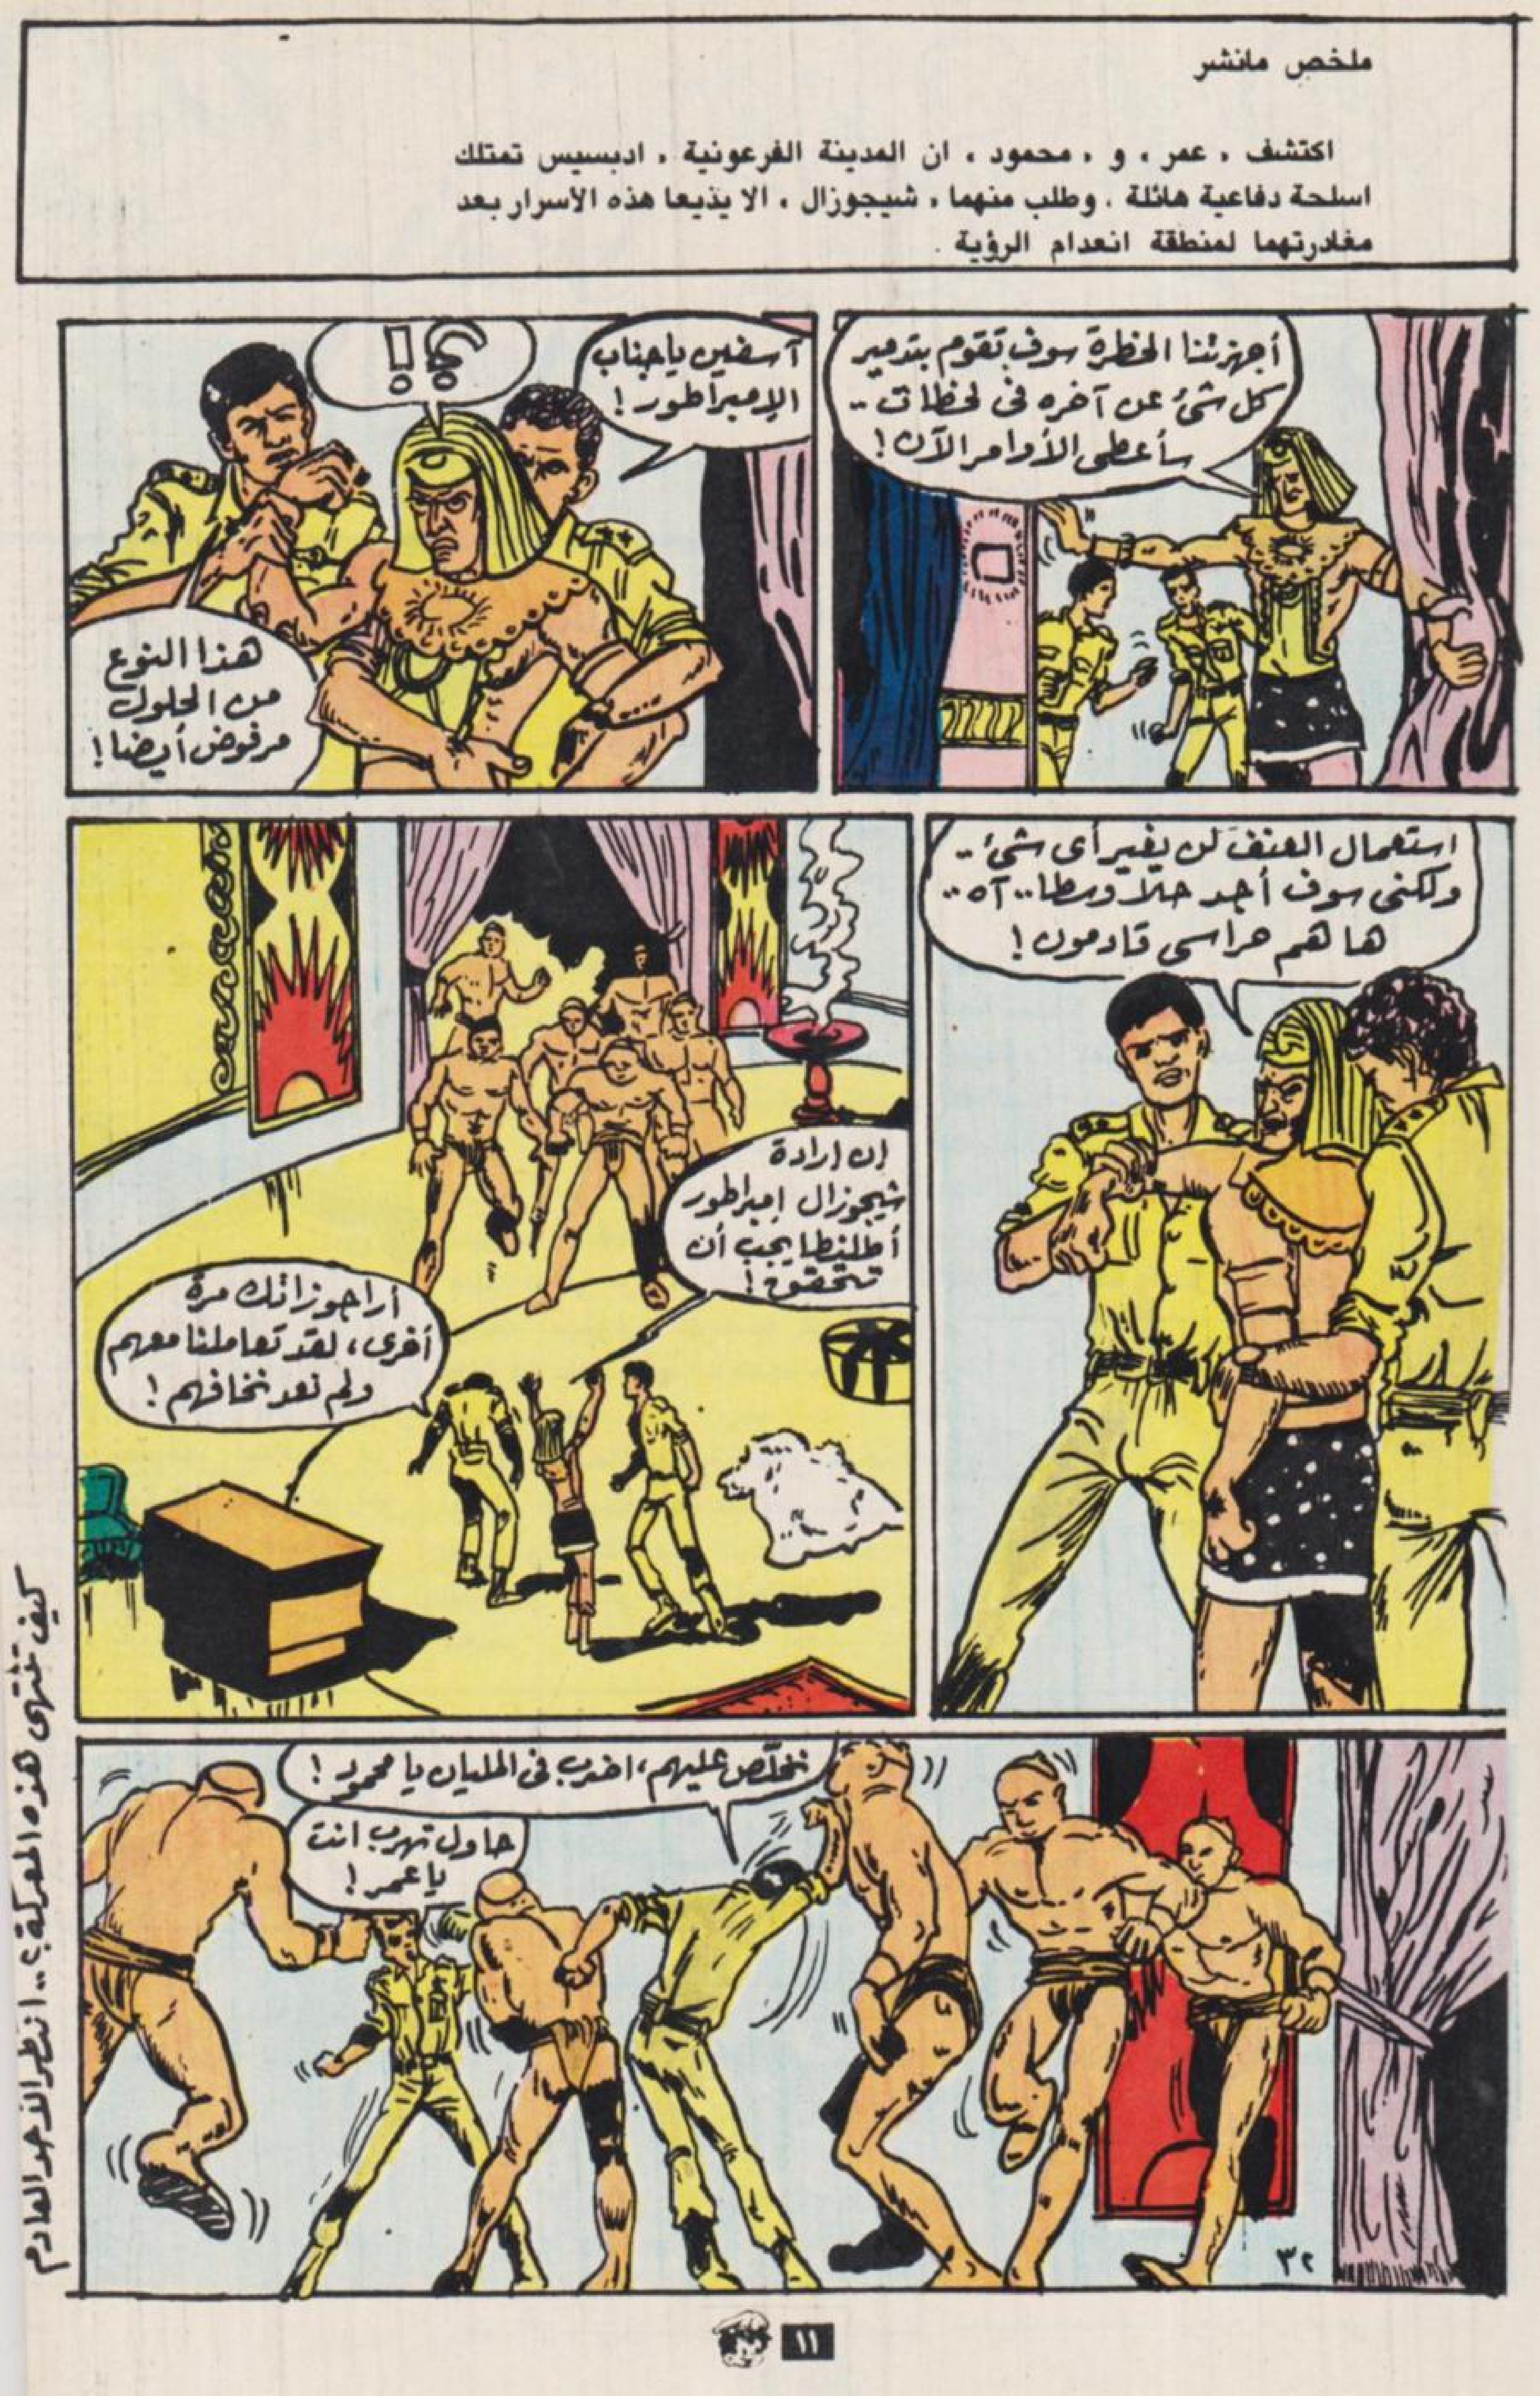 ملخص مانشر
اكتشف ، عمر ، و ، محمود ، ان المدينة الفرعونية ، اديسيس تمتلك
اسلحة دفاعية هائلة . وطلب منهما ، شيجوزال ، الا يذيعا هذه الاسرار بعد
مغادرتهما لمنطقة انعدام الرؤية .
أجهزتنا الخطرة سوف تقوم بتدمير
كل شئ عن آخره فى لحظات ..
سأعطى الأوامر الآن !
آسفين ياجناب
الإمبراطور !
؟!
هذا النوع
من الحلول
مرفوض أيضا !
استعمال العنف لن يغير أى شئ ..
ولكنى سوف أجد حلا وسطا .. آه ..
ها هم حراسى قادمون !
إن إرادة
شيجوزال إمبراطور
أطلنطا يجب أن
تتحقق !
أراجوزاتك مرة
أخرى ، لقد تعاملنا معهم
ولم نعد نخافهم !
نخلّص عليهم ، اضرب فى المليان يا محمود !
حاول تهرب انت
يا عمر !
٣٢
كيف تنتهى هذه المعركة ؟ .. انتظر الأحد القادم
١١